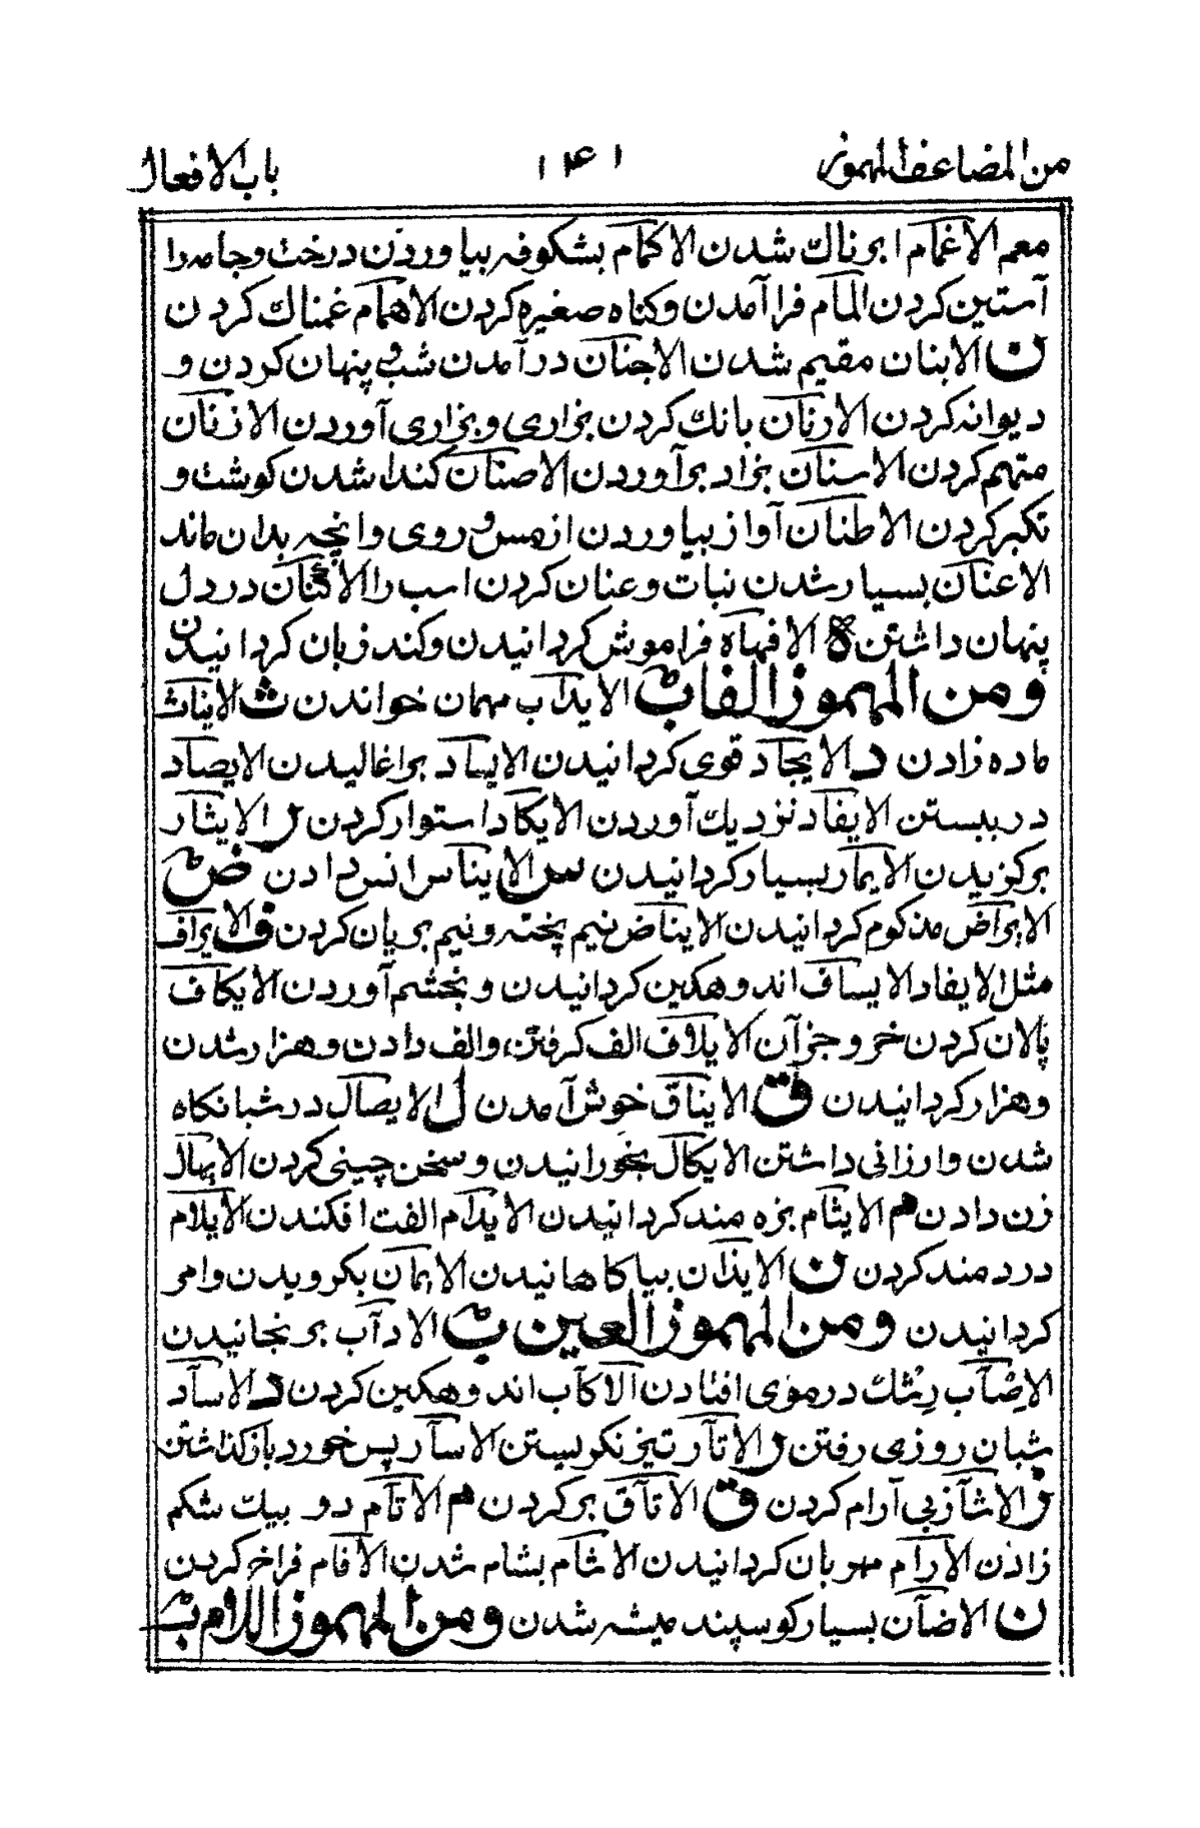 من المضاعف المهموز ۱۴۱ باب الافعال
معم الاغمام ابرناك شدن الاكمام بشكوفه بياوردن درخت وجامه را
آستين كردن الالمام فرا آمدن وكناه صغيره كردن الاهمام غمناك كردن
ن الابنان مقيم شدن الاجنان درآمدن شب و پنهان كردن و
ديوانه كردن الارنان بانك كردن بزاری و بزاری آوردن الازنان
متهم كردن الاسنان بزاد برآوردن الاصنان كندا شدن كوشت و
تكبر كردن الاطنان آواز بياوردن از مس و روی وانچه بدان ماند
الاعنان بسيار شدن نبات وعنان كردن اسب را الاكنان در دل
پنهان داشتن ه الافهاه فراموش كردانيدن وكند زبان كردانيدن
ومن المهموز الفاب الايداب مهمان خواندن ث الايناث
ماده زادن د الايجاد قوی كردانيدن الايساد براغاليدن الايصاد
در ببستن الايفاد نزديك آوردن الايكاد استوار كردن ر الايثار
بركزيدن الايمار بسيار كردانيدن س الايناس انس دادن ض
الايراض مذكوم كردانيدن الايناض نيم پخته ونيم بريان كردن ف الايراف
مثل الايفاد الايساف اندوهكين كردانيدن و بخشم آوردن الايكاف
پالان كردن خر و جز آن الايلاف الف كرفتن والف دادن وهزار شدن
وهزار كردانيدن ق الايناق خوش آمدن ل الايصال در شبانكاه
شدن وارزانی داشتن الايكال بخورانيدن و سخن چينی كردن الايهال
زن دادن م الايثام بزه مند كردانيدن الايدام الفت افكندن الايلام
دردمند كردن ن الايذان بياكاهانيدن الايمان بكرويدن وامر
كردانيدن ومن المهموز العين ب الادآب برنجانيدن
الاصآب رشك در موی افتادن الاكآب اندوهكين كردن د الاسآد
شبان روزی رفتن ر الاتآر تيز نكريستن الاسآر پس خورد باز كذاشتن
ز الاشآز بی آرام كردن ق الاتآق بر كردن م الاتآم دو بيك شكم
زادن الارآم مهربان كردانيدن الاشآم بشام شدن الافام فراخ كردن
ن الاضآن بسيار كوسپند ميشه شدن ومن المهموز اللام ب